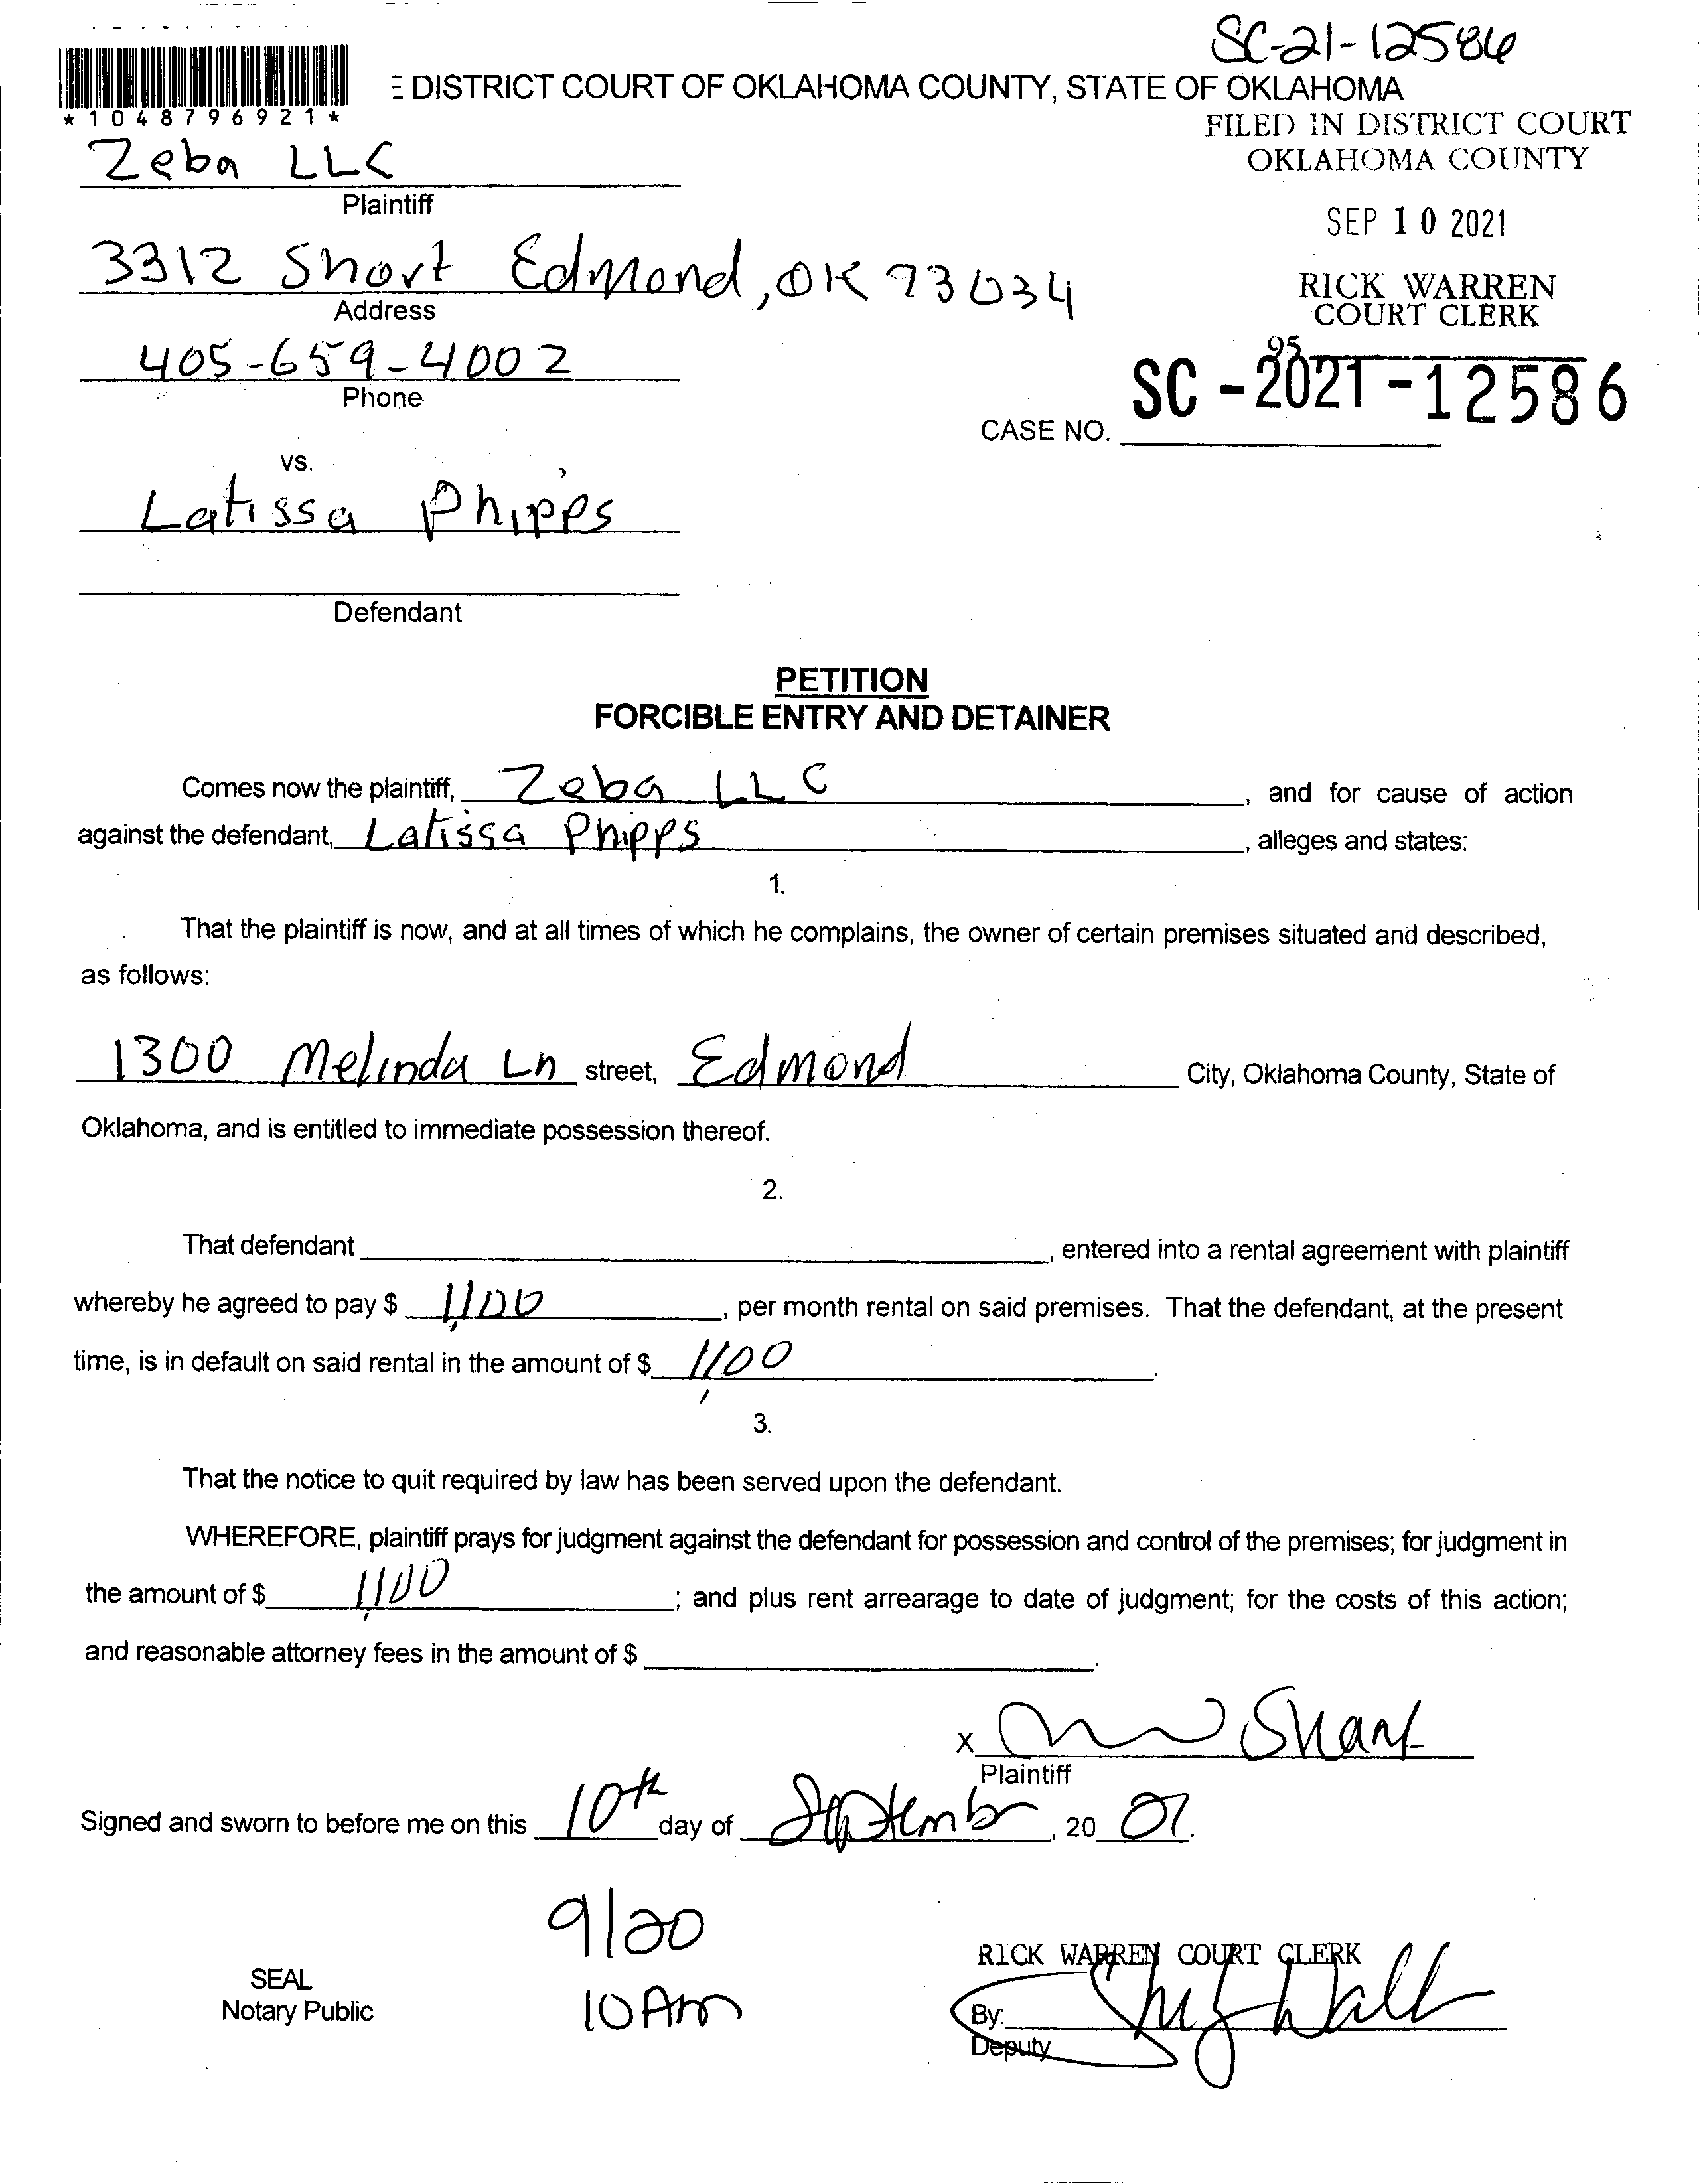 SC-21-12586
DISTRICT COURT OF OKLAHOMA COUNTY, STATE OF OKLAHOMA
*1048796921*
FILED IN DISTRICT COURT
OKLAHOMA COUNTY
Zeba LLC
Plaintiff
SEP 10 2021
3312 Short Edmond, OK 73034
Address
RICK WARREN
COURT CLERK
405-659-4002
Phone
95
SC-2021-12586
CASE NO.
vs.
Latissa Phipps
Defendant
PETITION
FORCIBLE ENTRY AND DETAINER
Comes now the plaintiff, Zeba LLC, and for cause of action
against the defendant, Latissa Phipps, alleges and states:
1.
That the plaintiff is now, and at all times of which he complains, the owner of certain premises situated and described,
as follows:
1300 Melinda Ln street, Edmond City, Oklahoma County, State of
Oklahoma, and is entitled to immediate possession thereof.
2.
That defendant, entered into a rental agreement with plaintiff
whereby he agreed to pay $ 1,100, per month rental on said premises. That the defendant, at the present
time, is in default on said rental in the amount of $ 1,100.
3.
That the notice to quit required by law has been served upon the defendant.
WHEREFORE, plaintiff prays for judgment against the defendant for possession and control of the premises; for judgment in
the amount of $ 1,100; and plus rent arrearage to date of judgment; for the costs of this action;
and reasonable attorney fees in the amount of $.
X
Plaintiff
Signed and sworn to before me on this 10th day of September, 20
9/20
10 AM
SEAL
Notary Public
RICK WARREN COURT CLERK
By:
Deputy